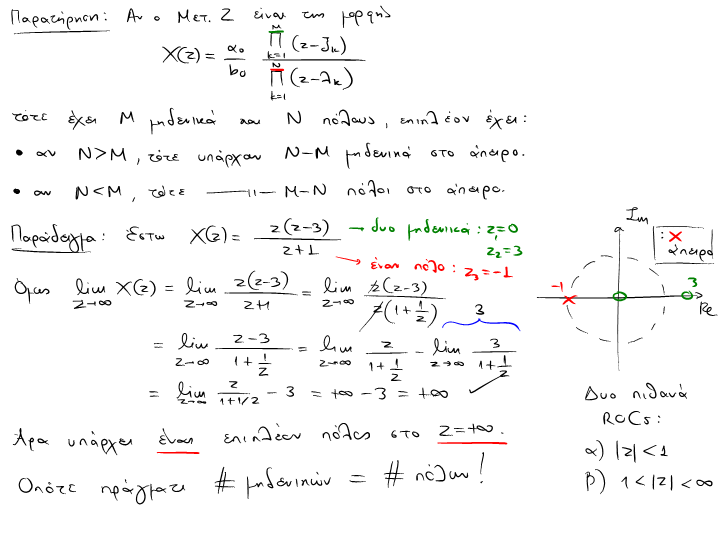 Παρατήρηση: Αν ο Μετ. Z είναι της μορφής
X(z) = α₀/b₀ ∏_{k=1}^{M} (z-ζₖ) / ∏_{k=1}^{N} (z-λₖ)
τότε έχει M μηδενικά και N πόλους, επιπλέον έχει:
• αν N>M, τότε υπάρχουν N-M μηδενικά στο άπειρο.
• αν N<M, τότε —〃— M-N πόλοι στο άπειρο.
Παράδειγμα: έστω X(z) = z(z-3) / z+1 → δυο μηδενικά: z₁=0
z₂=3
→ έναν πόλο: z₃=-1
Όμως lim_{z→∞} X(z) = lim_{z→∞} z(z-3)/z+1 = lim_{z→∞} z(z-3)/z(1+1/z)
3
= lim_{z→∞} z-3/1+1/z = lim_{z→∞} z/1+1/z - lim_{z→∞} 3/1+1/z
= lim_{z→∞} z/1+1/z - 3 = +∞ - 3 = +∞ ✓
Άρα υπάρχει ένας επιπλέον πόλος στο z=+∞.
Οπότε πράγματι # μηδενικών = # πόλων!
Im
: × άπειρο
-1
3
Re
Δυο πιθανά
ROCs:
α) |z|<1
β) 1<|z|<∞